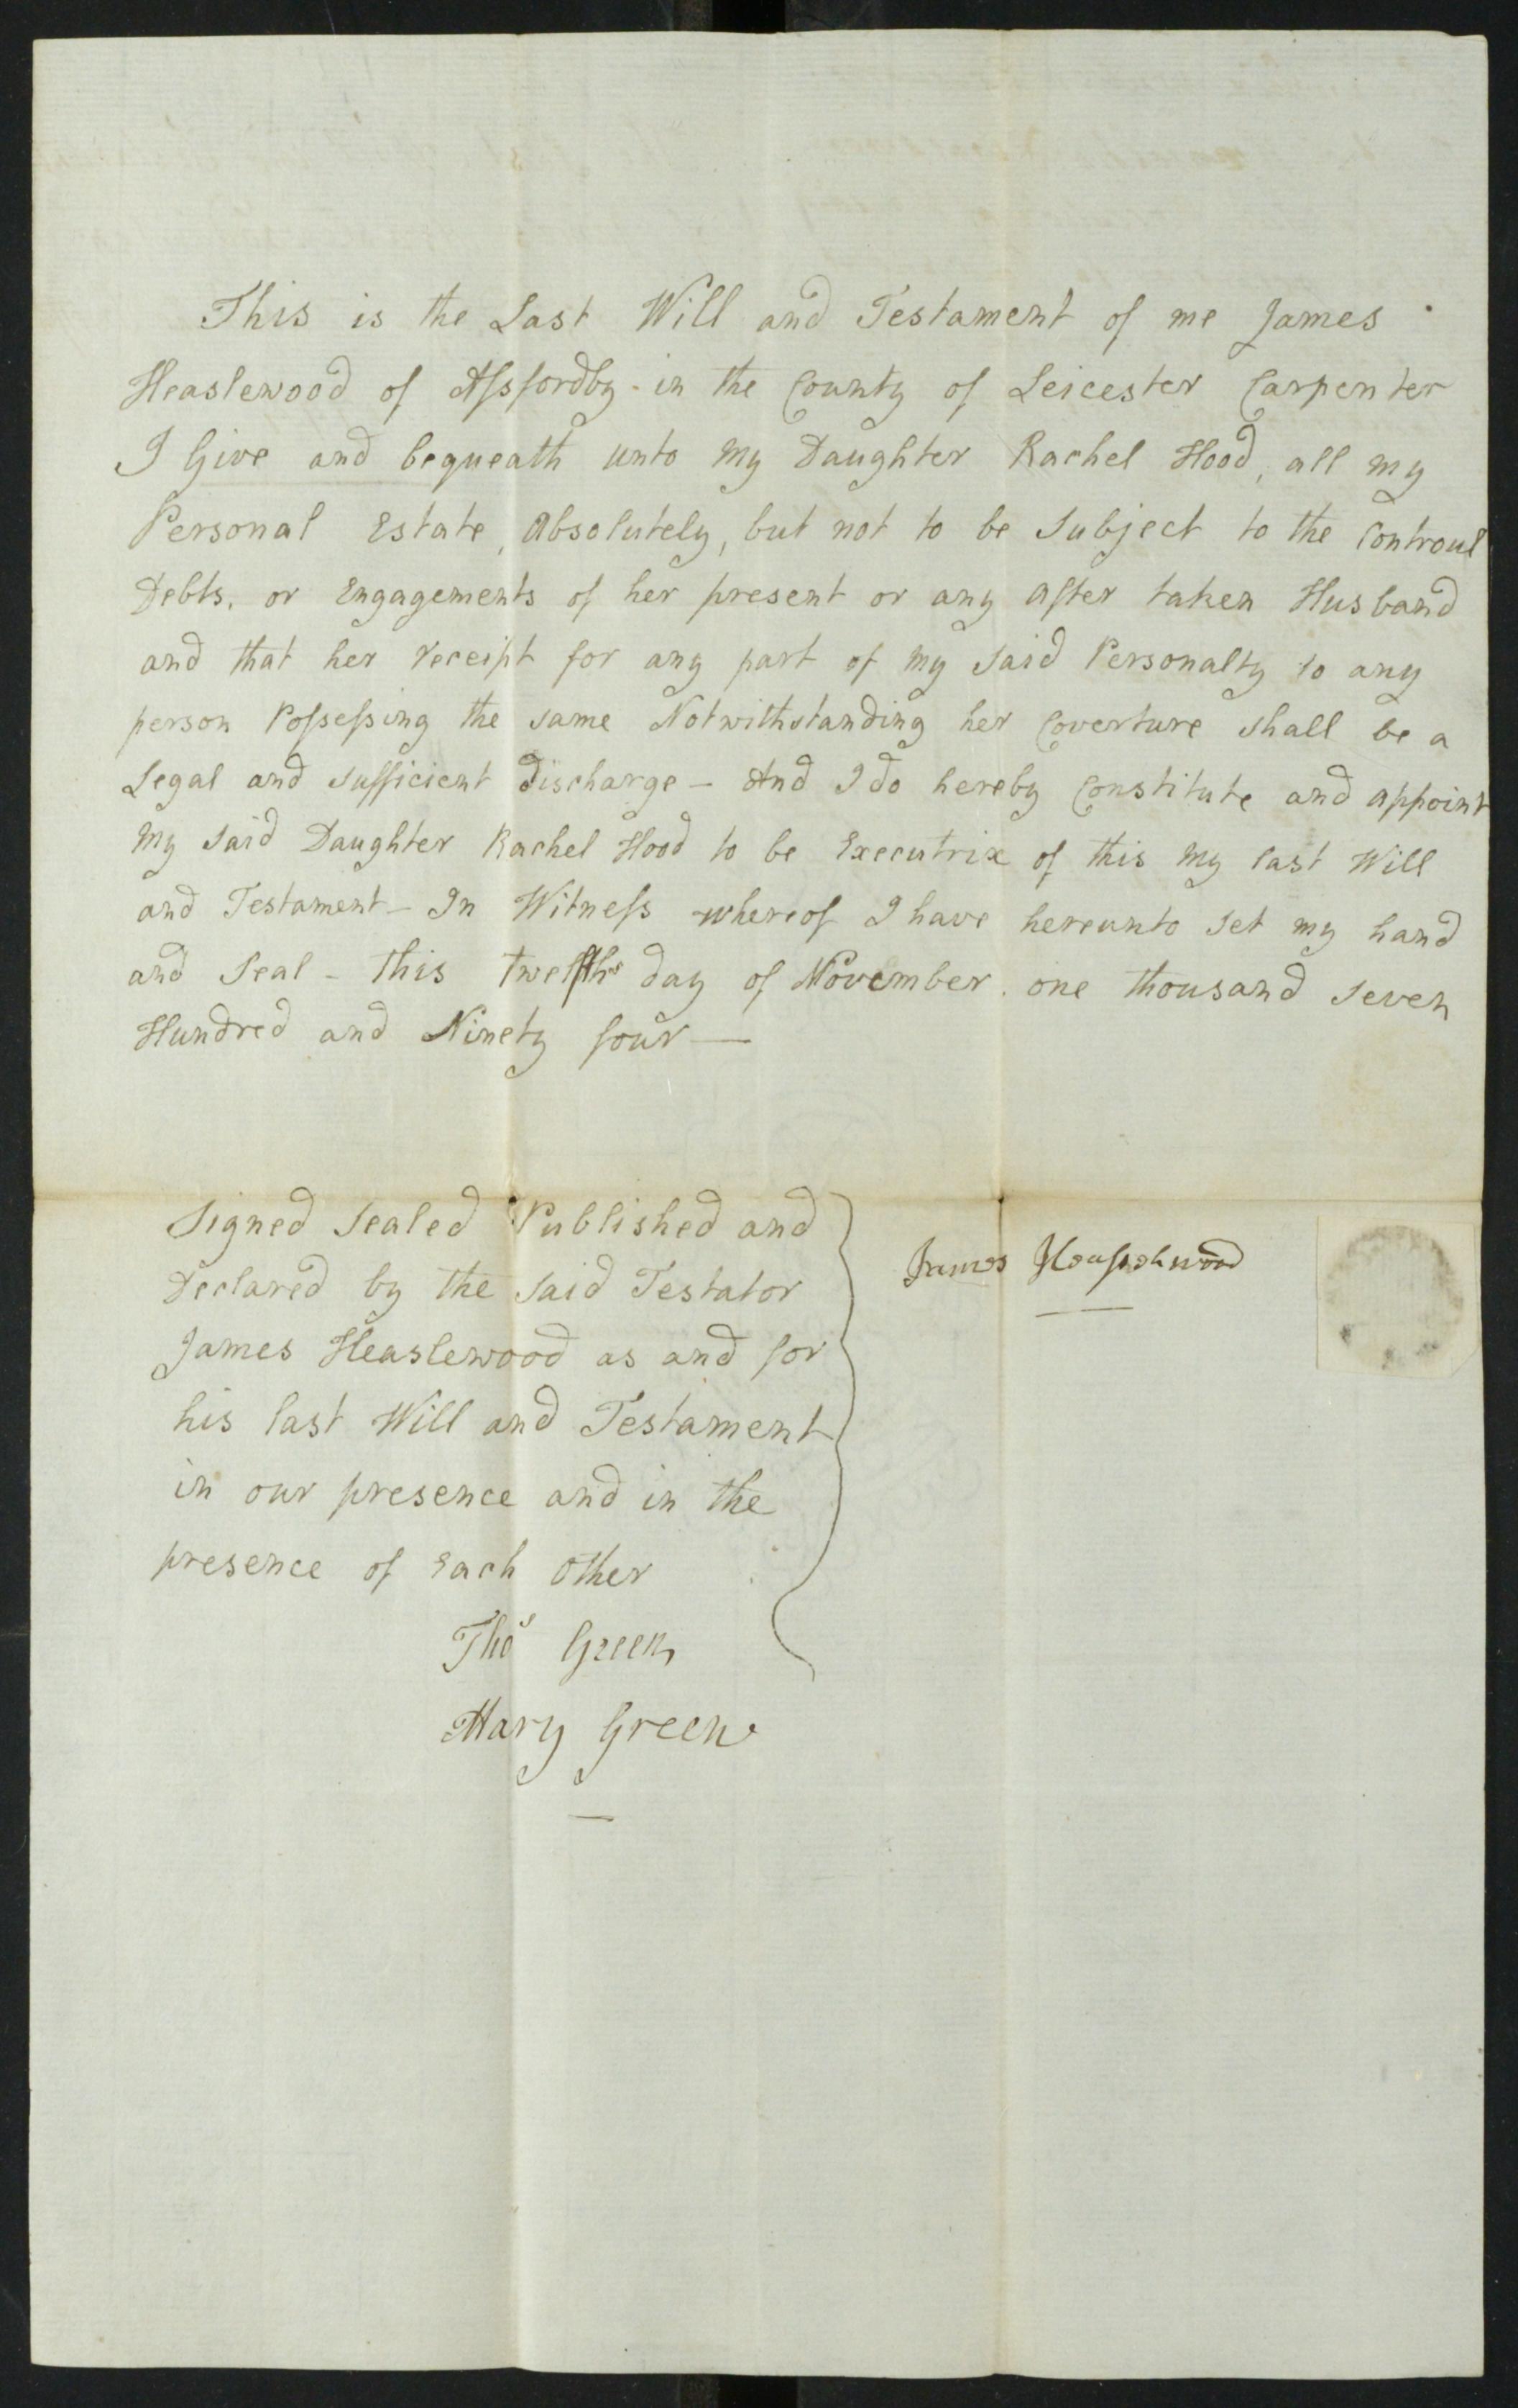 This is the Last Will and Testament of me James
Heaslewood of Assfordby - in the County of Leicester Carpenter
I Give and bequeath unto my Daughter Rachel Hood, all my
Personal Estate, Absolutely, but not to be Subject to the Controul
Debts, or Engagements of her present or any after taken Husband
and that her receipt for any part of my said Personalty to any
person Possessing the same Notwithstanding her Coverture shall be a
Legal and sufficient Discharge - And I do hereby Constitute and appoint
my said Daughter Rachel Hood to be Executrix of this my last Will
and Testament - In Witness whereof I have hereunto set my hand
and Seal - this twelfth day of November. one thousand seven
Hundred and Ninety four —
Signed Sealed Published and
Declared by the said Testator
James Heaslewood as and for
his last Will and Testament
in our presence and in the
presence of Each Other
James
Thos Green
Mary Green